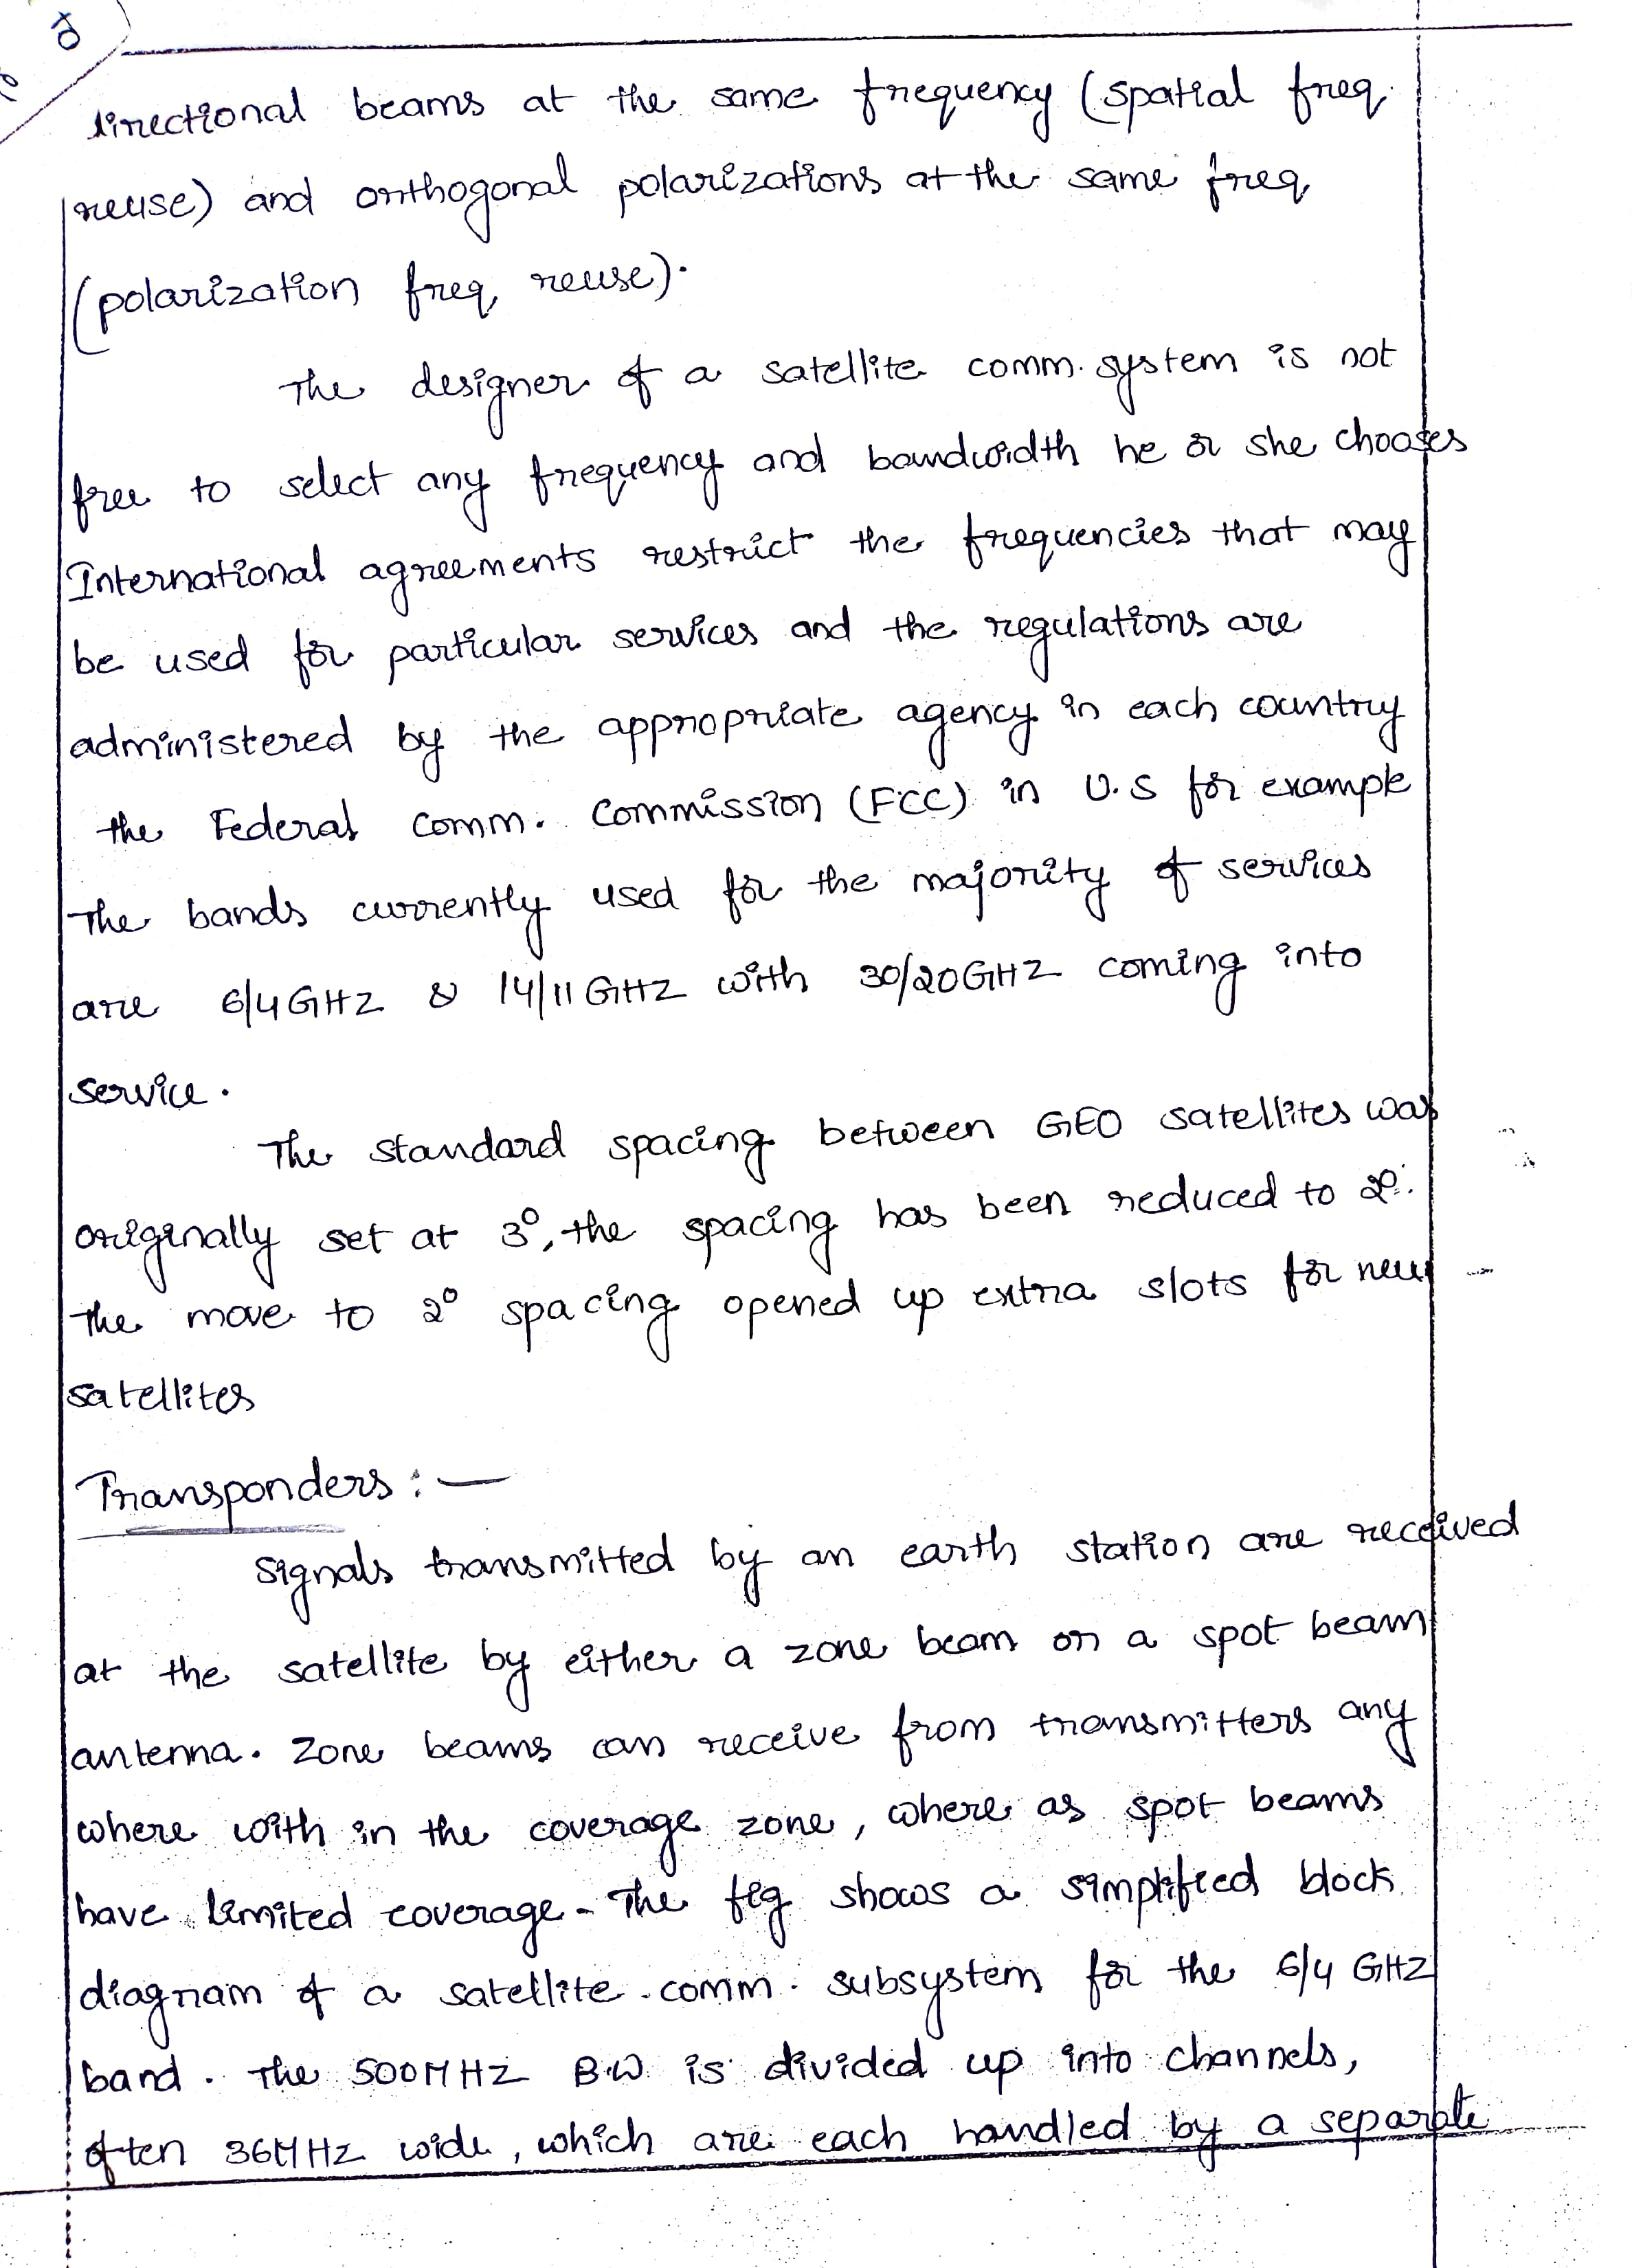 directional beams at the same frequency (spatial freq.
reuse) and orthogonal polarizations at the same freq
(polarization freq reuse).
The designer of a satellite comm. system is not
free to select any frequency and bandwidth he or she chooses
International agreements restrict the frequencies that may
be used for particular services and the regulations are
administered by the appropriate agency in each country
the Federal comm. Commission (FCC) in U.S for example
The bands currently used for the majority of services
are 6/4 GHZ & 14/11 GHZ with 30/20 GHZ coming into
service.
The standard spacing between GEO satellites was
originally set at 3°, the spacing has been reduced to 2°.
The move to 2° spacing opened up extra slots for new
satellites
Transponders :—
Signals transmitted by an earth station are received
at the satellite by either a zone beam or a spot beam
antenna. Zone beams can receive from transmitters any
where with in the coverage zone, where as spot beams
have limited coverage - The fig shows a simplified block
diagram of a satellite comm. subsystem for the 6/4 GHZ
band. The 500MHZ B.W is divided up into channels,
often 36MHZ wide, which are each handled by a separate